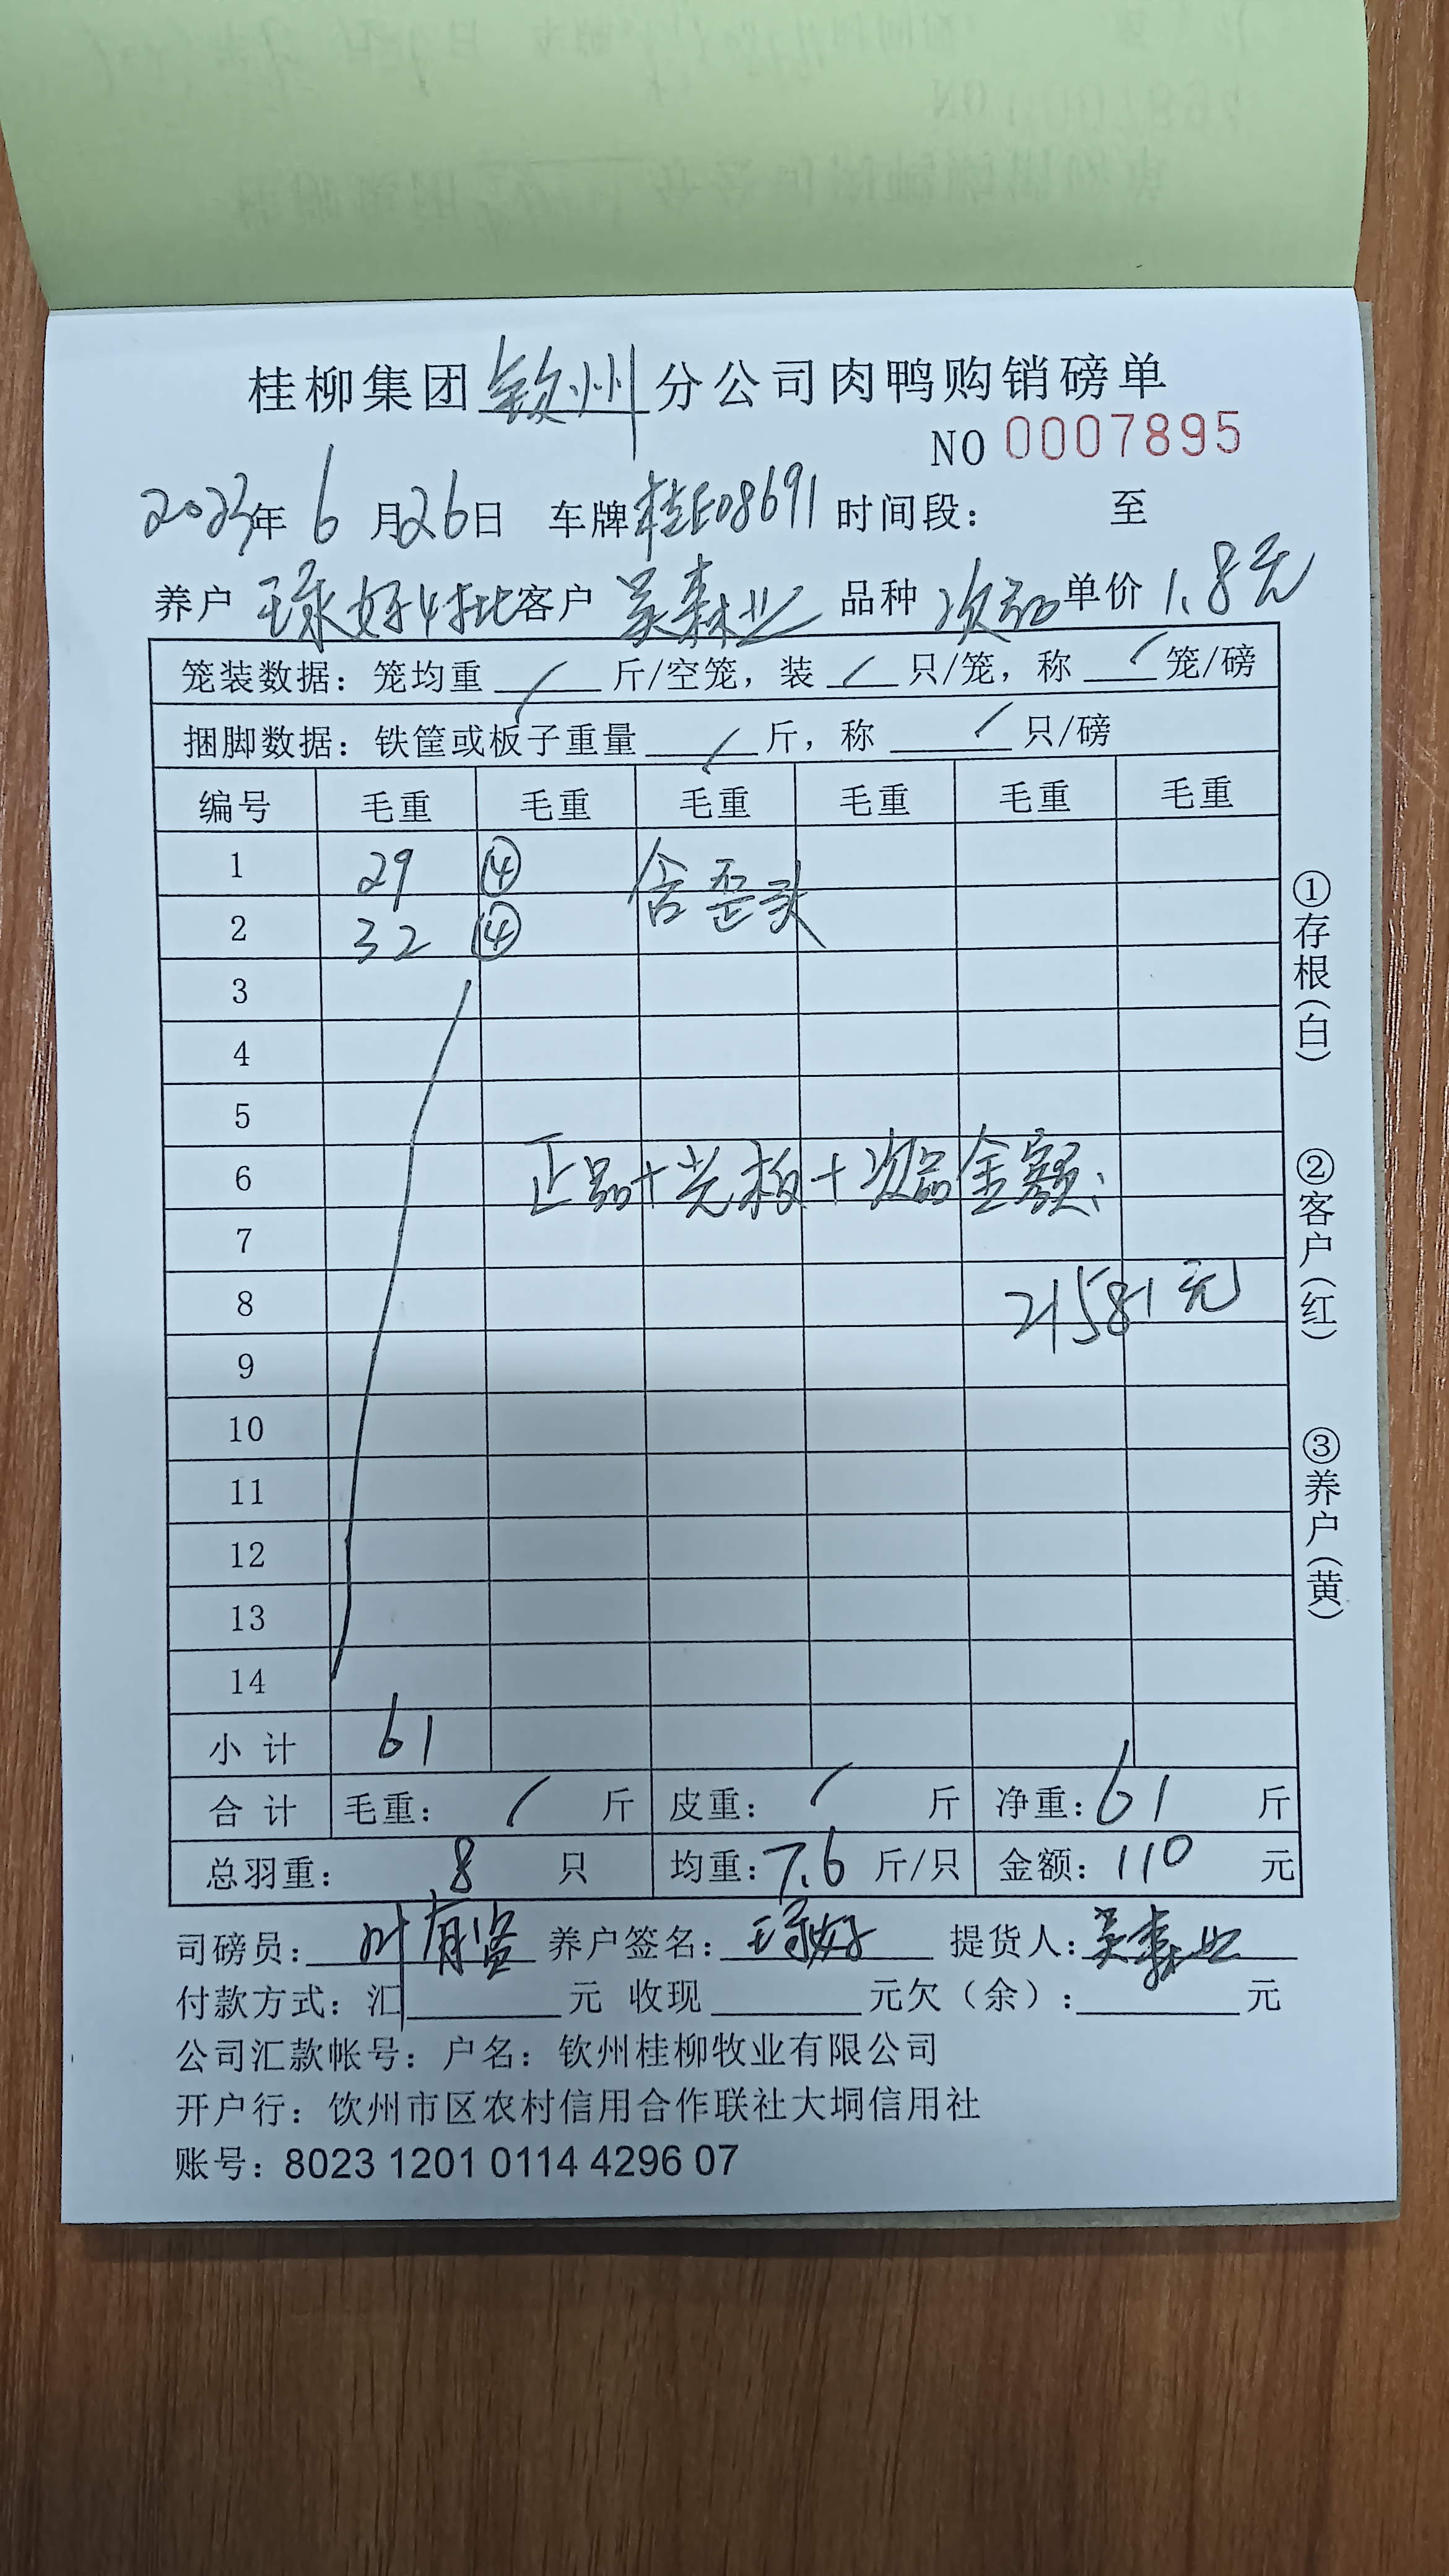 桂柳集团钦州分公司肉鸭购销磅单
NO 0007895
2023年 6月26日 车牌桂E08691 时间段： 至
养户 客户 吴森业 品种 次品 单价 1.8元
笼装数据：笼均重 / 斤/空笼，装 / 只/笼，称 / 笼/磅
捆脚数据：铁筐或板子重量 / 斤，称 / 只/磅
编号 毛重 毛重 毛重 毛重 毛重 毛重
1 29 ④ 含歪头
2 32 ④
3
4
5
6 正品+光板+次品金额：
7
8 21581元
9
10
11
12
13
14
小计 61
合计 毛重： / 斤 皮重： / 斤 净重：61 斤
总羽重： 8 只 均重：7.6 斤/只 金额：110 元
司磅员： 养户签名： 提货人：吴森业
付款方式：汇 元 收现 元欠（余）： 元
公司汇款帐号：户名：钦州桂柳牧业有限公司
开户行：饮州市区农村信用合作联社大垌信用社
账号：8023 1201 0114 4296 07
①存根（白）
②客户（红）
③养户（黄）